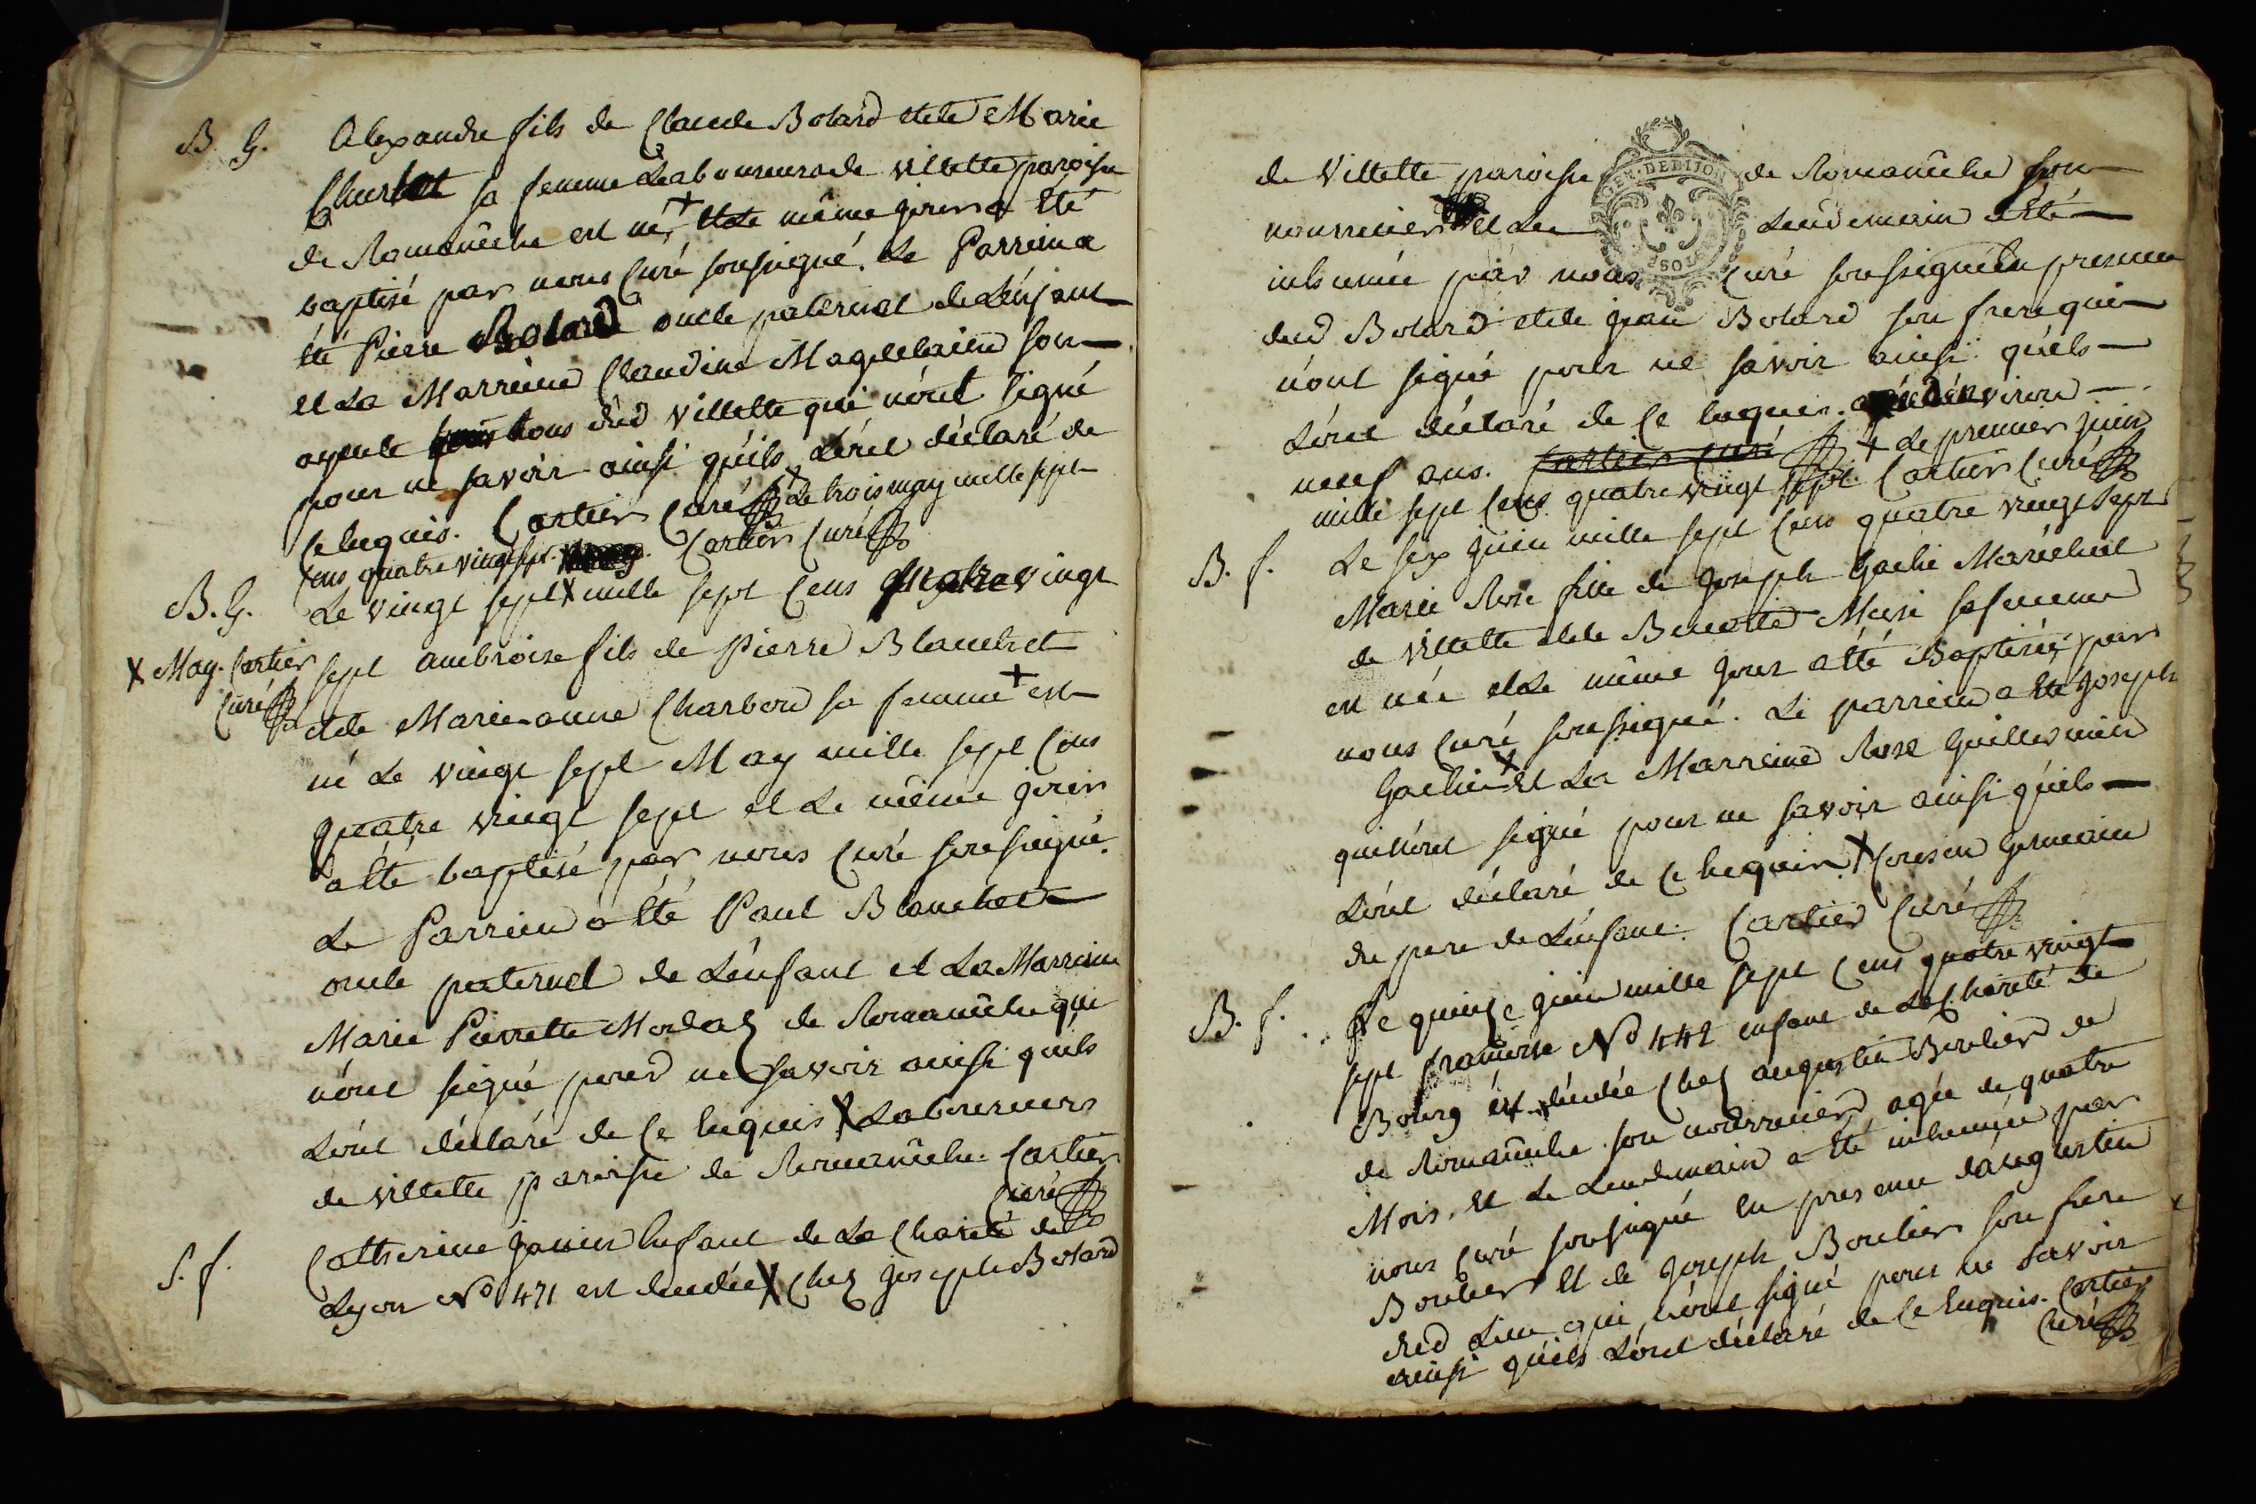 B. G. Alexandre fils de Claude Bolard et de Marie
Charlet sa femme Laboureurs de villette paroisse
de Romanêche est né + et Le même jour a Eté
baptisé par nous Curé soussigné. Le Parrein a
été Pierre Bolard oncle paternel de L'enfant
et La Marreine Claudine Magdelaine son
ayeule tous dud villette qui n'ont signé
pour ne savoir ainsi qu'ils L'ont déclaré de
Ce Enquis. Cartier Curé + Le trois may mille sept
Cens quatre vingt sept. Cartier Curé
B. G. Le vingt sept X mille sept Cens quatre vingt
X May. Cartier
Curé
sept ambroise fils de Pierre Blanchet
et de Marie anne Charbon sa femme + est
né Le vingt sept May mille sept Cens
quatre vingt sept et Le même jour
a Eté baptisé par nous Curé soussigné.
Le Parrein a Eté Paul Blanchet
oncle paternel de L'enfant et La Marreine
Marie Pierrette de Romanêche qui
n'ont signé pour ne savoir ainsi quils
L'ont déclaré de Ce Enquis X Laboureurs
de villette paroisse de Romanêche. Cartier
Curé
S. f. Catherine Janin Enfant de La Charité de
Lyon No 471 est decedée X Chez Joseph Bolard
de Villette paroisse de Romanêche son
GEN. DE DIJON
nourricier et Le Lendemain a Eté
inhumée par nous Curé soussigné En presence
dud Bolard et de jean Bolard son frere qui
n'ont signé pour ne savoir ainsi qu'ils
L'ont déclaré de Ce Enquis. environ
neuf ans. Cartier Curé + Le premier juin
mille sept Cens quatre vingt sept. Cartier Curé
B. f. Le six juin mille sept Cens quatre vingt sept
Marie Rose fille de Joseph Gachi Maréchal
de villette et de Benoite sa femme
est née et Le même jour a été Baptisée par
nous Curé soussigné. Le parrein a Eté Joseph
Gachi X et La Marreine Rose Guillermin
qui n'ont signé pour ne savoir ainsi qu'ils
L'ont déclaré de Ce Enquis. X Cousin Germain
du pere de L'enfant. Cartier Curé
B. f. Le quinze juin mille sept Cens quatre vingt
sept francoise No 442 enfant de La Charité de
Bourg est decedée Chez augustin Boulier de
de Romanêche son nourricier agée de quatre
Mois. et Le Lendemain a Eté inhumée par
nous Curé soussigné En presence daugustin
Boulier et de Joseph Boulier son frere
dud Lieu qui n'ont signé pour ne savoir
ainsi qu'ils L'ont déclaré de Ce Enquis. Cartier
Curé